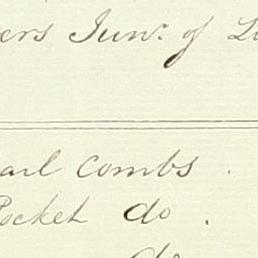 ers Junr. of L
arl Combs .
Pocket do .
do